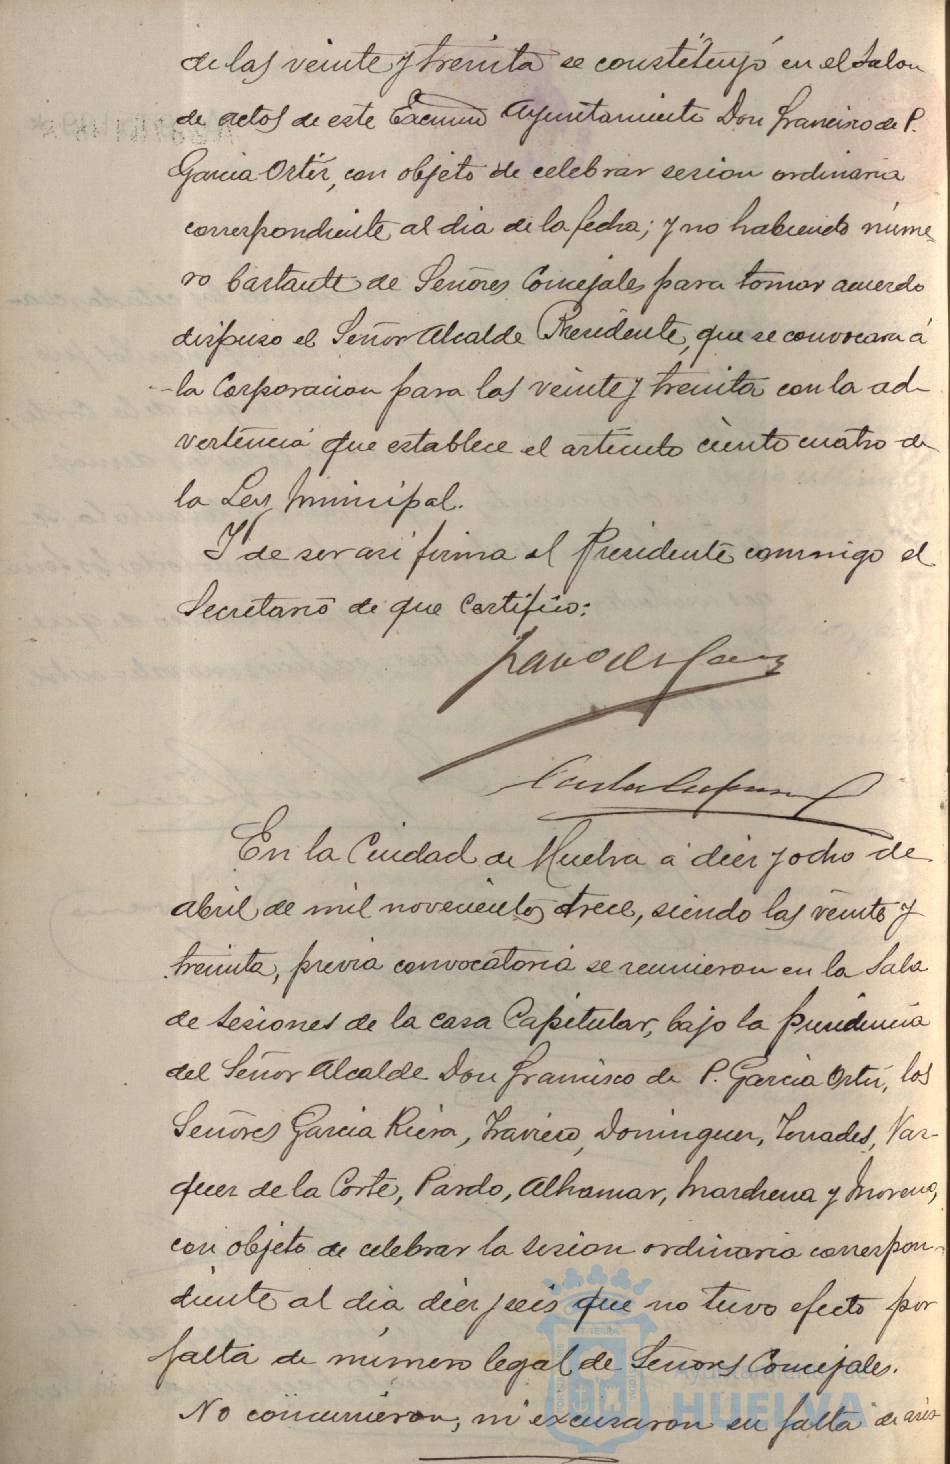 de las veinte y treinta se constituyó en el Salon
de actos de este Excmo Ayuntamiento Don Francisco de P.
Garcia Ortiz, con objeto de celebrar sesion ordinaria
correspondiente al dia de la fecha; y no habiendo núme-
ro bastante de Señores Concejales para tomar acuerdo
dispuso el Señor Alcalde Presidente, que se convocara á
la Corporacion para las veinte y treinta con la ad-
vertencia que establece el artículo ciento cuatro de
la Ley Municipal.
Y de ser asi firma el Presidente conmigo el
Secretario de que certifico:
En la Ciudad de Huelva á diez y ocho de
abril de mil novecientos trece, siendo las veinte y
treinta, previa convocatoria se reunieron en la Sala
de sesiones de la casa Capitular, bajo la presidencia
del Señor Alcalde Don Francisco de P. Garcia Ortiz, los
Señores Garcia Riera, Traviero, Dominguez, Terrades, Vaz-
quez de la Corte, Pardo, Alhamar, Marchena y Moreno,
con objeto de celebrar la sesion ordinaria correspon-
diente al dia diez y seis que no tuvo efecto por
falta de número legal de Señores Concejales.
Ayuntamiento de
HUELVA
No concurrieron, ni excusaron su falta de asis